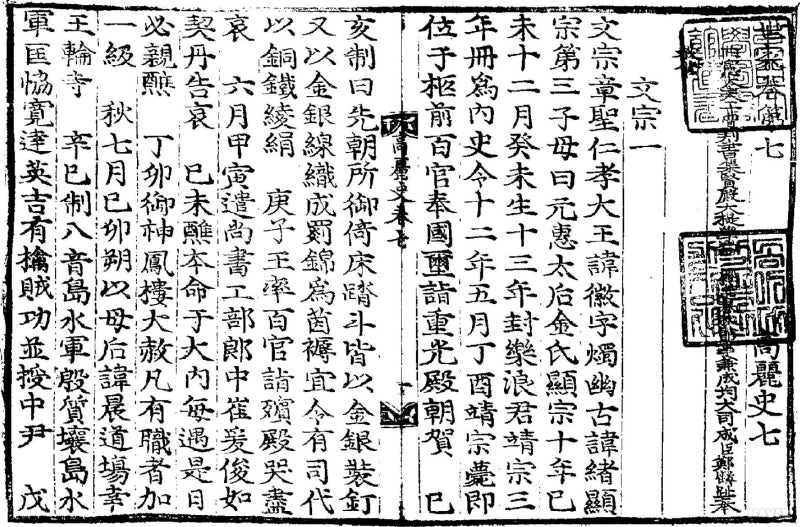 世家卷第七 高麗史七
正憲大夫工曹判書集賢殿大提學知 經筵春秋館事兼成均大司成臣鄭麟趾奉
教修
文宗一
文宗章聖仁孝大王諱徽字燭幽古諱緖顯
宗第三子母曰元惠太后金氏顯宗十年己
未十二月癸未生十三年封樂浪君靖宗三
年冊爲內史令十二年五月丁酉靖宗薨即
位于柩前百官奉國璽詣重光殿朝賀 己
高麗史卷七 一
亥制曰先朝所御倚床踏斗皆以金銀裝釘
又以金銀線織成罽錦爲茵褥宜令有司代
以銅鐵綾絹 庚子王率百官詣殯殿哭盡
哀 六月甲寅遣尙書工部郞中崔爰俊如
契丹告哀 己未醮本命于大內每遇是日
必親醮 丁卯御神鳳樓大赦凡有職者加
一級 秋七月己卯朔以母后諱晨道場幸
王輪寺 辛巳制八音島水軍殷質壤島水
軍匡協寬達英吉有擒賊功並授中尹 戊